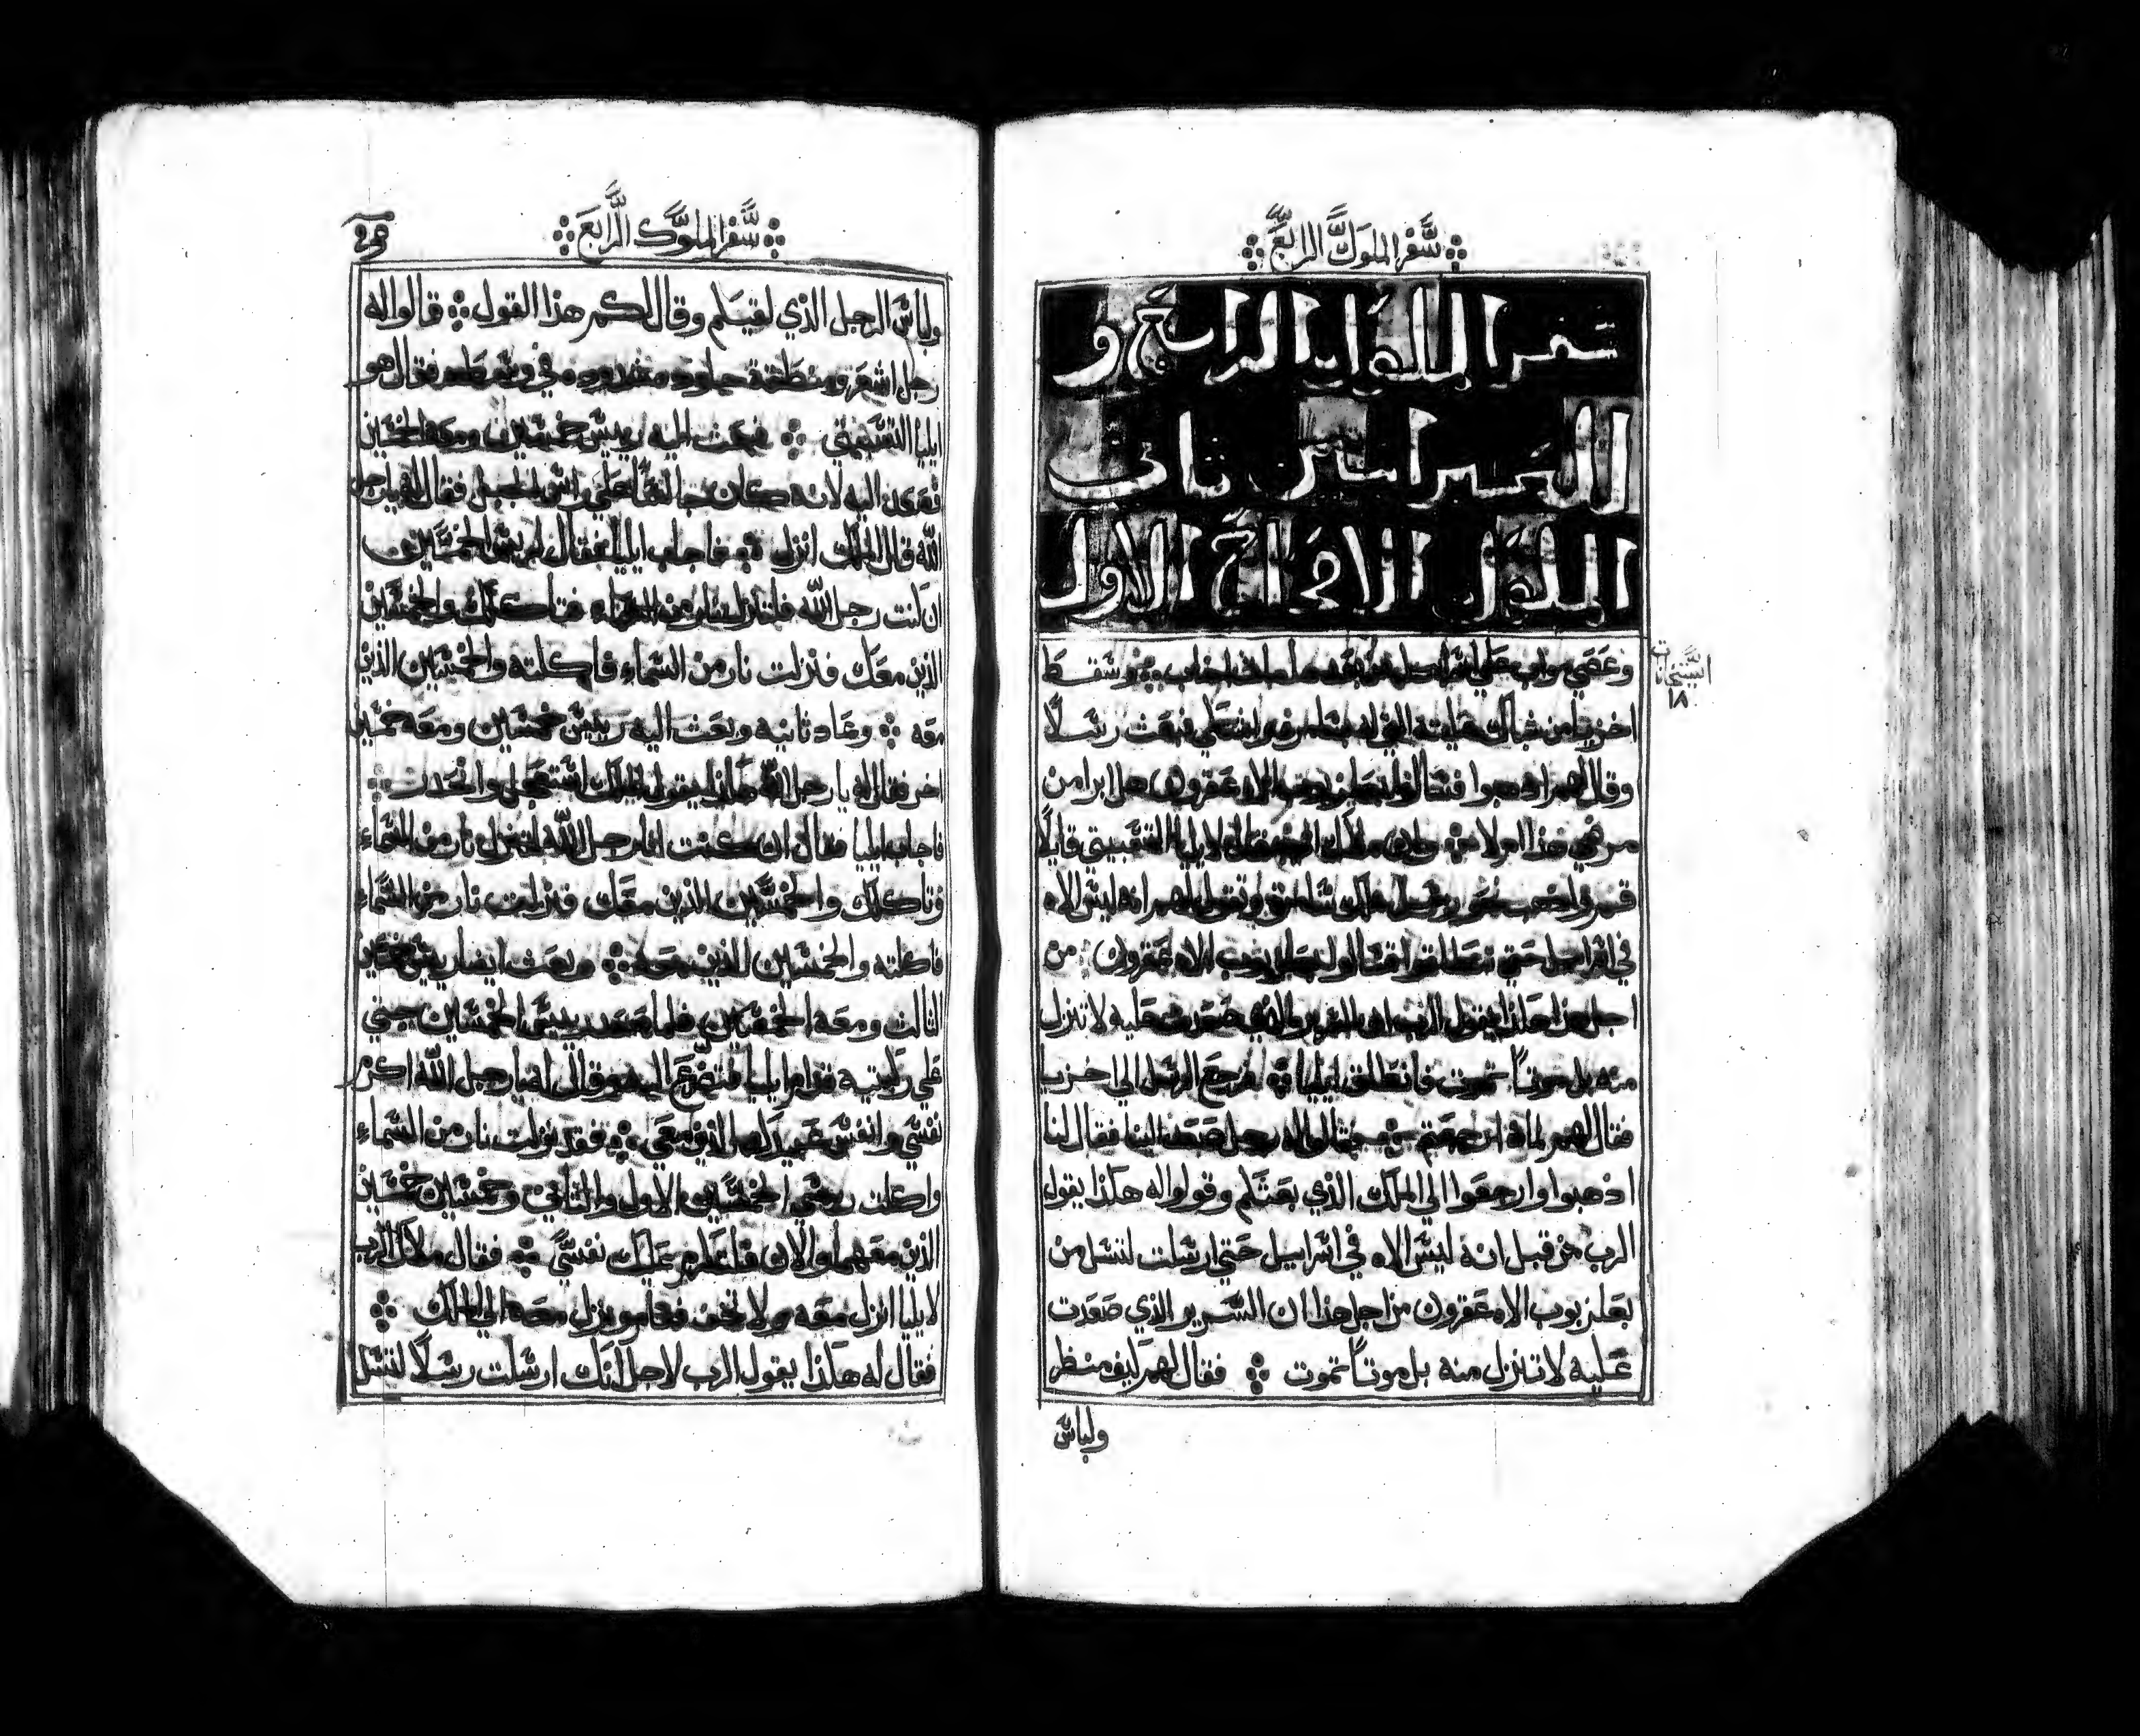 سفر الملوك الرابع
سفر الملوك الرابع و
العبرانيين ثاني
الملوك الاصحاح الاول
وعصي مواب علي اسراييل من بعد ما مات اخاب وسقط
اخزيا من شباك عليته التي له بسامره واعتلي فبعث رسلًا
وقال لهم اذهبوا فتسالوا بعلزبوب الاه عقرون هل ابرا من
مرضي هذا ام لا وان ملاك الرب فقال لايليا التسبيتي قايلًا
قم واصعد نحو رسل ملك سامره وتقول لهم انه ليس الاه
في اسراييل حتي تنطلقوا تسالوا بعلزبوب الاه عقرون من
اجل هذا هكذا يقول الرب ان السرير الذي صعدت عليه لا تنزل
منه بل موتًا تموت فانطلق ايليا فرجع الرسل الي اخزيا
فقال لهم لماذا رجعتم فقالوا له رجل صعد الينا فقال لنا
اذهبوا وارجعوا الي الملك الذي بعثكم وقولوا له هكذا يقول
الرب من قبل انه ليس الاه في اسراييل حتي ارسلت لتسل من
بعلزبوب الاه عقرون من اجل هذا ان السرير الذي صعدت
عليه لا تنزل منه بل موتًا تموت فقال لهم كيف منظر
ولباس
السنجات
١٨
سفر الملوك الرابع
ولباس الرجل الذي لقيكم وقال لكم هذا القول قالوا له
رجل اشعر ومنطقة جلود مشدوده في وسطه فقال هو
ايليا التسبيتي فبعث اليه رييس خمسين ومعه الخمسين
فصعد اليه لانه كان جالسًا علي راس الجبل فقال له يا رجل
الله قال الملك انزل فاجاب ايليا فقال لرييس الخمسين
ان كنت رجل الله فلتنزل نار من السماء فتاكلك والخمسين
الذين معك فنزلت نار من السماء فاكلته والخمسين الذين
معه وعاد ثانيه وبعث اليه رييس خمسين ومعه خمسين
اخر فقال له يا رجل الله هكذا يقول الملك استعجل وانحدر
فاجابه ايليا فقال ان كنت انا رجل الله لتنزل نار من السماء
وتاكلك والخمسين الذين معك فنزلت نار من السماء
فاكلته والخمسين الذين معه وبعث ايضا رييس خمسين
الثالث ومعه الخمسين فلما صعد رييس الخمسين جثي
علي ركبتيه قدام ايليا فتضرع اليه وقال له يا رجل الله اكرم
نفسي وانفس عبيدك الذين معي فقد نزلت نار من السماء
واكلت رييسي الخمسين الاول والثاني وخمسين خمسين
الذين معهما والان فلتكرم عليك نفسي فقال ملاك الرب
لايليا انزل معه ولا تخف فقام ونزل معه الي الملك
فقال له هكذا يقول الرب لاجل انك ارسلت رسلًا لتسل